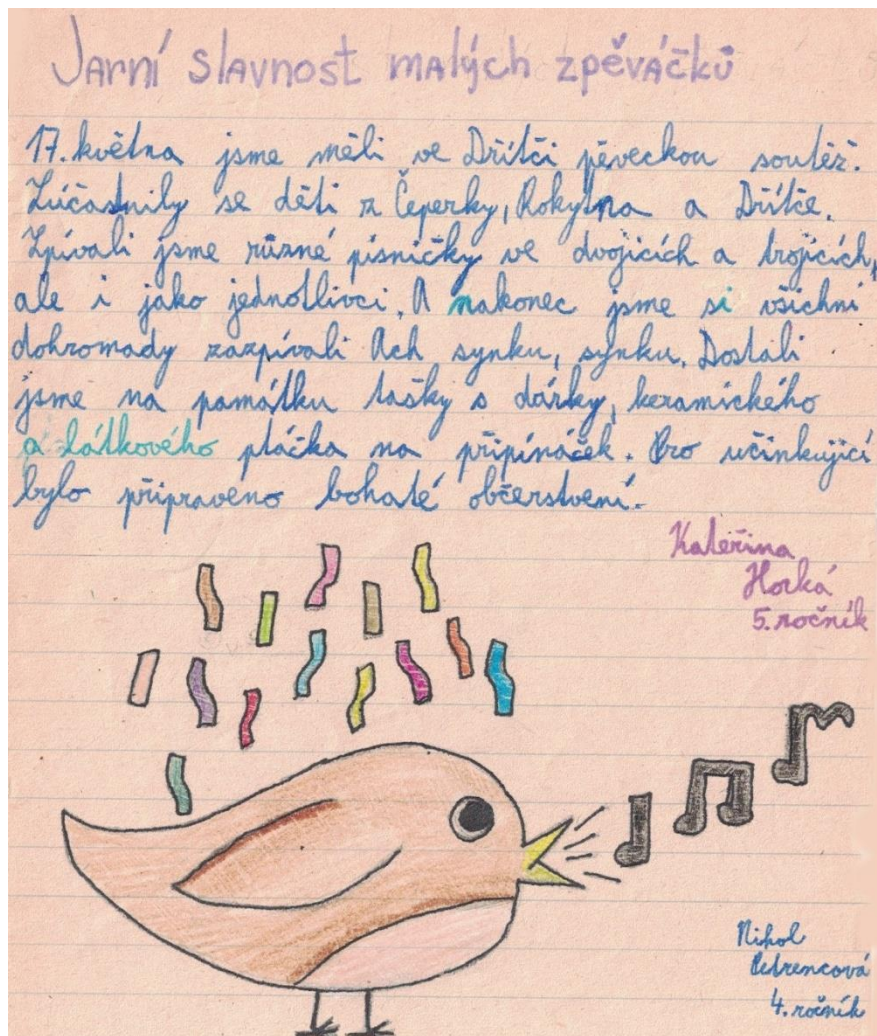 Jarní slavnost malých zpěváčků
17. května jsme měli ve Dříťči pěveckou soutěž.
Zúčastnily se děti z Čeperky, Rokytna a Dříťče.
Zpívali jsme různé písničky ve dvojicích a trojicích,
ale i jako jednotlivci. A nakonec jsme si všichni
dohromady zazpívali Ach synku, synku. Dostali
jsme na památku tašky s dárky, keramického
a látkového ptáčka na připínáček. Pro učinkující
bylo připraveno bohaté občerstvení.
Kateřina
Horká
5. ročník
Nikol
Petrencová
4. ročník